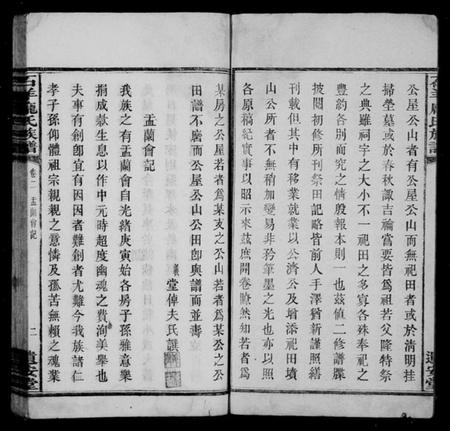 公屋公山者有公屋公山而無祀田者或於清明挂
掃塋墓或於春秋諏吉論嘗要皆爲祖若父隆特祭
之典雖祠宇之大小不一祀田之多寡各殊奉祀之
豐約各別而究之情殷報本則一也茲値二修譜牒
披閱初修所刊祭田記略皆前人手澤猶新謹照繕
刊載但其中有移業就業以公濟公及增添祀田墳
山公所者不無稍加變易非矜筆墨之光也亦以照
各原稿紀實事以昭示來茲庶開卷瞭然知若者爲
某房之公屋若者爲某支之公山若者爲某公之公
田譜不廣而公屋公山公田卽與譜而並壽
義堂倬夫氏譔
盂蘭會記
我族之有盂蘭會自光緒庚寅始各房子孫雅意樂
捐成欵生息以作中元時超度幽魂之費洵美舉也
夫事有創卽宜有因因者難創者尤難今我族諸仁
孝子孫仰體祖宗親親之意憐及孤苦無賴之魂業
石羊龐氏族譜
卷二 盂蘭會記
二
遺安堂